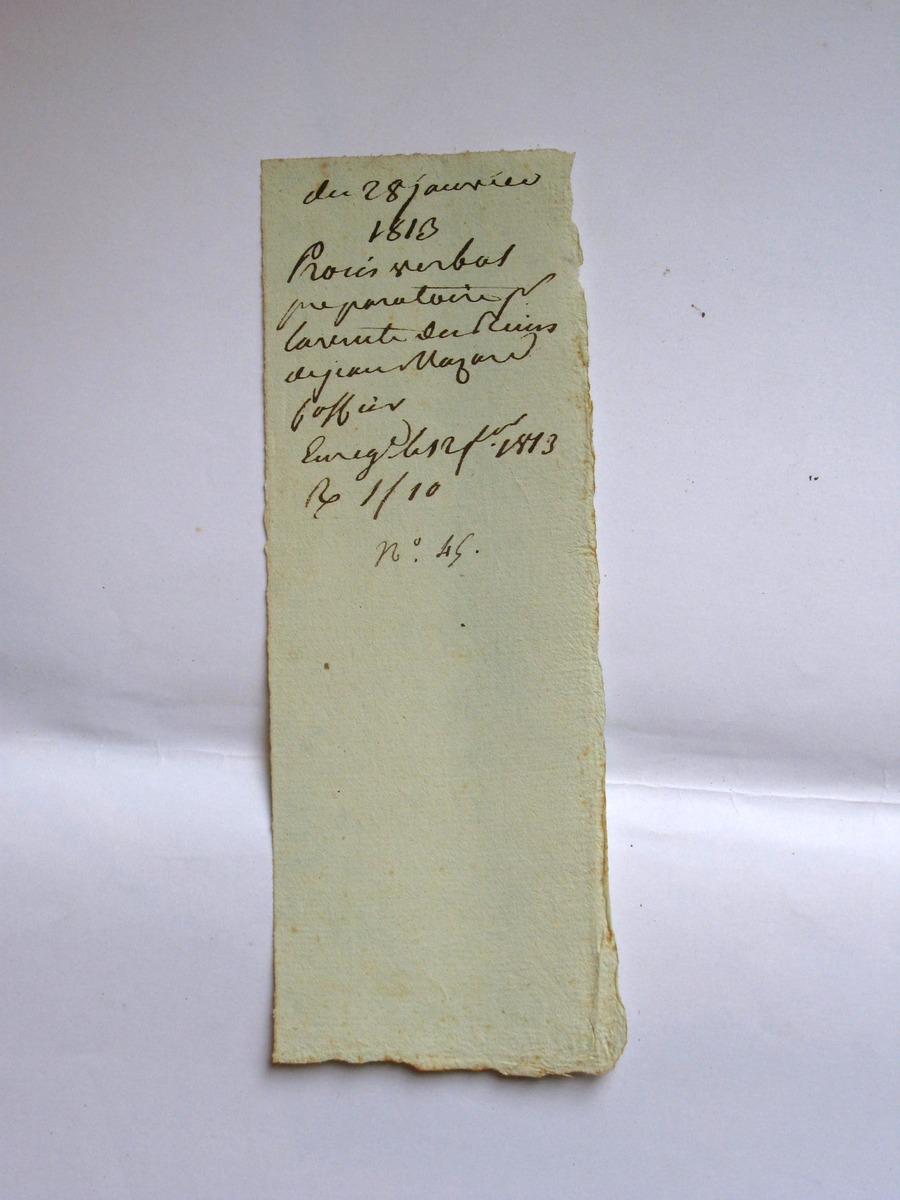 du 28 janvier
1813
Procés verbal
preparatoire pr
la vente des Biens
de jean Mazard
Enregé le 12 fer 1813
Rx 1/10
N°. 45.